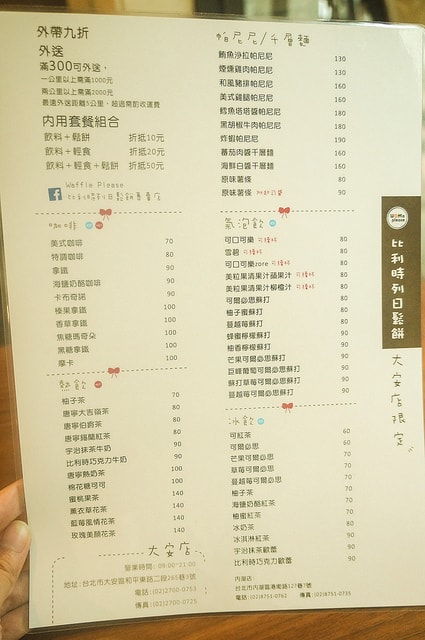 外帶九折
外送
滿300可外送，
一公里以上需滿1000元
兩公里以上需滿2000元
最遠外送距離5公里，超過需酌收運費
內用套餐組合
飲料＋鬆餅 折抵10元
飲料＋輕食 折抵20元
飲料＋輕食＋鬆餅 折抵50元
Waffle Please
比利時列日鬆餅專賣店
咖啡
美式咖啡 70
特調咖啡 80
拿鐵 90
海鹽奶酪咖啡 90
卡布奇諾 90
榛果拿鐵 100
香草拿鐵 100
焦糖瑪奇朵 100
黑糖拿鐵 100
摩卡 100
熱飲
柚子茶 70
唐寧大吉嶺茶 80
唐寧伯爵茶 80
唐寧錫蘭紅茶 80
宇治抹茶牛奶 90
比利時巧克力牛奶 90
唐寧熱奶茶 100
棉花糖可可 100
蜜桃果茶 140
薰衣草花茶 140
藍莓風情花茶 140
玫瑰美顏花茶 140
大安店
營業時間：09:00~21:00
地址：台北市大安區和平東路二段265巷3號
電話：(02)2700-0753
傳真：(02)2700-0725
帕尼尼/千層麵
鮪魚沙拉帕尼尼 130
煙燻雞肉帕尼尼 130
和風豬排帕尼尼 160
美式雞腿帕尼尼 160
鱈魚塔塔醬帕尼尼 180
黑胡椒牛肉帕尼尼 180
炸蝦帕尼尼 190
蕃茄肉醬千層麵 160
海鮮白醬千層麵 160
原味薯條 80
原味薯條 90
氣泡飲
可口可樂 可續杯 80
雪碧 可續杯 80
可口可樂zero 可續杯 80
美粒果清果汁蘋果汁 可續杯 80
美粒果清果汁柳橙汁 可續杯 80
可爾必思蘇打 80
柚子蜜蘇打 80
蔓越莓蘇打 80
蜂蜜檸檬蘇打 90
柚香檸檬蘇打 90
芒果可爾必思蘇打 80
巨峰葡萄可爾必思蘇打 80
蘇打草莓可爾必思蘇打 80
蔓越莓可爾必思蘇打 80
冰飲
可紅茶 60
可爾必思 60
芒果可爾必思 70
草莓可爾必思 70
蔓越莓可爾必思 70
柚子茶 70
海鹽奶酪紅茶 70
柚蜜紅茶 70
冰奶茶 80
冰淇淋紅茶 90
宇治抹茶歐蕾 90
比利時巧克力歐蕾 90
內湖店：
台北市內湖區港墘路127巷7號
電話：(02)8751-0762 傳真：(02)8751-0735
Waffle please
比利時列日鬆餅
大安店限定